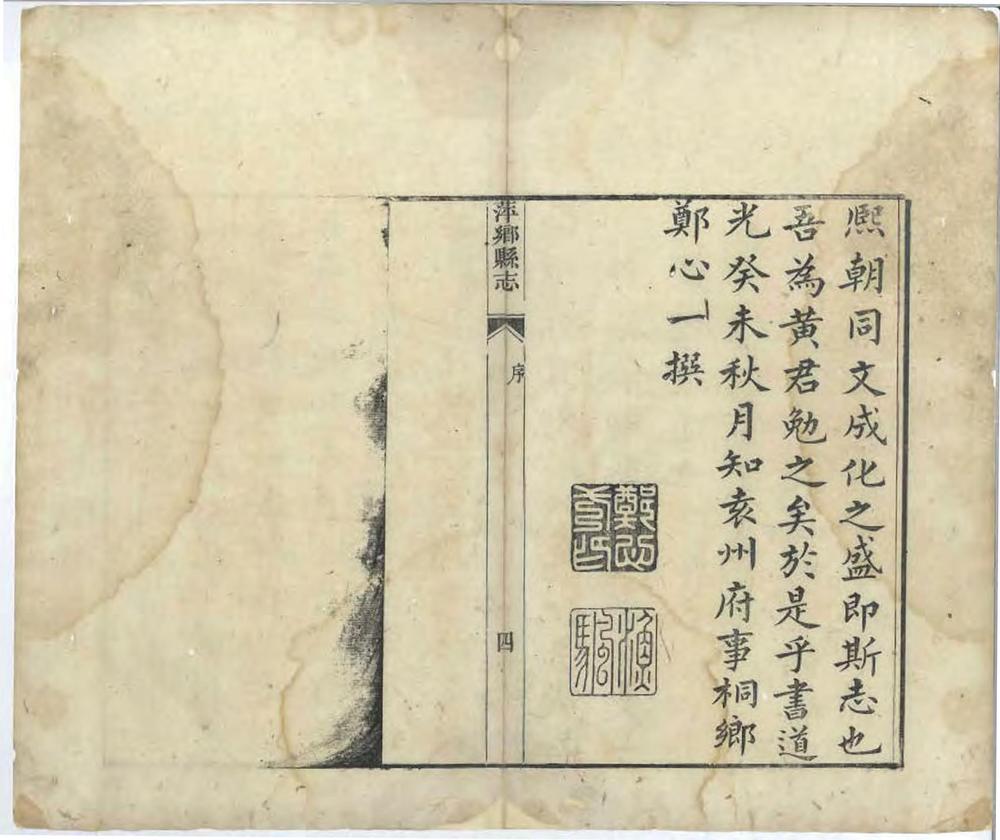 熈朝同文成化之盛即斯志也
吾為黄君勉之矣於是乎書道
光癸未秋月知袁州府事桐鄉
鄭心一撰
鄭心
弌印
漁
騆
萍鄉縣志
序
四